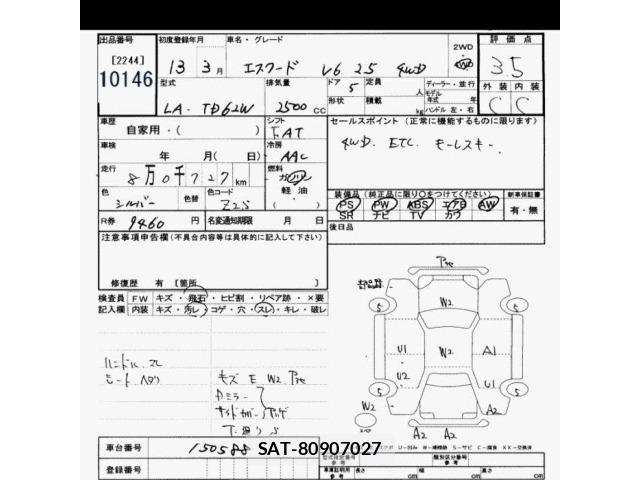 出品番号 初度登録年月 車名・グレード 2WD 評価点
[2244] 13 3月 エスクード V6 2.5 4WD 4WD 3.5
10146 型式 排気量 ドア 定員 ディーラー・並行 外装 内装
LA-TD62W 2500cc 5 人 モデル年式 年 C C
形状 積載 kg ハンドル 左・右
車歴 自家用・( ) シフト FAT セールスポイント (正常に機能するものに限ります)
車検 年 月(日) 冷房 AAC 4WD. ETC
走行 8万0千727km 燃料 ガソリン
軽油 ( )
色 シルバー 色替 色コード Z2S 装備品 (純正品に限り○をつけてください) 新車保証書
PS PW ABS エアB AW 有・無
SR ナビ TV カワ
R券 9460円 名変通知期限 月 日 後日品
注意事項申告欄 (不具合内容等は具体的に記入して下さい)
修復歴 有 [箇所 ]
検査員 FW キズ・飛石・ヒビ割・リペア跡・×要
記入欄 内装 キズ・汚レ・コゲ・穴・スレ・キレ・破レ
W2
5 5
U1 W2 A1
U2 U1
5 5
W2
スペア
A2 A2
ハンドル スレ
シート ヘタリ
キズ E W2
車台番号 150588
SAT-80907027
登録番号
型式指定番号 参考 類別区分番号 参考
車庫証明用 参考 長さ cm 幅 cm 高さ cm